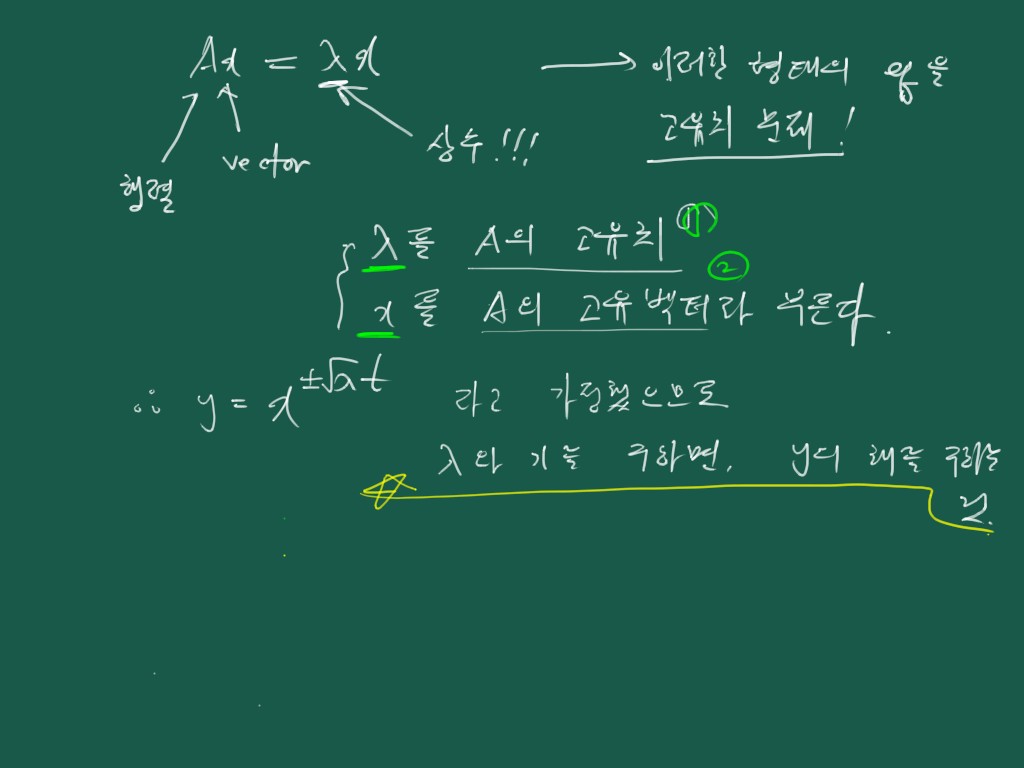 Ax = λx → 이러한 형태의 응용
상수!!! 고유치 문제!
행렬 vector
λ를 A의 고유치 ①
x를 A의 고유벡터라 부른다. ②
∴ y = x^{±√λt} 라고 가정했으므로
λ와 x를 구하면, y의 해를 구하는
것.